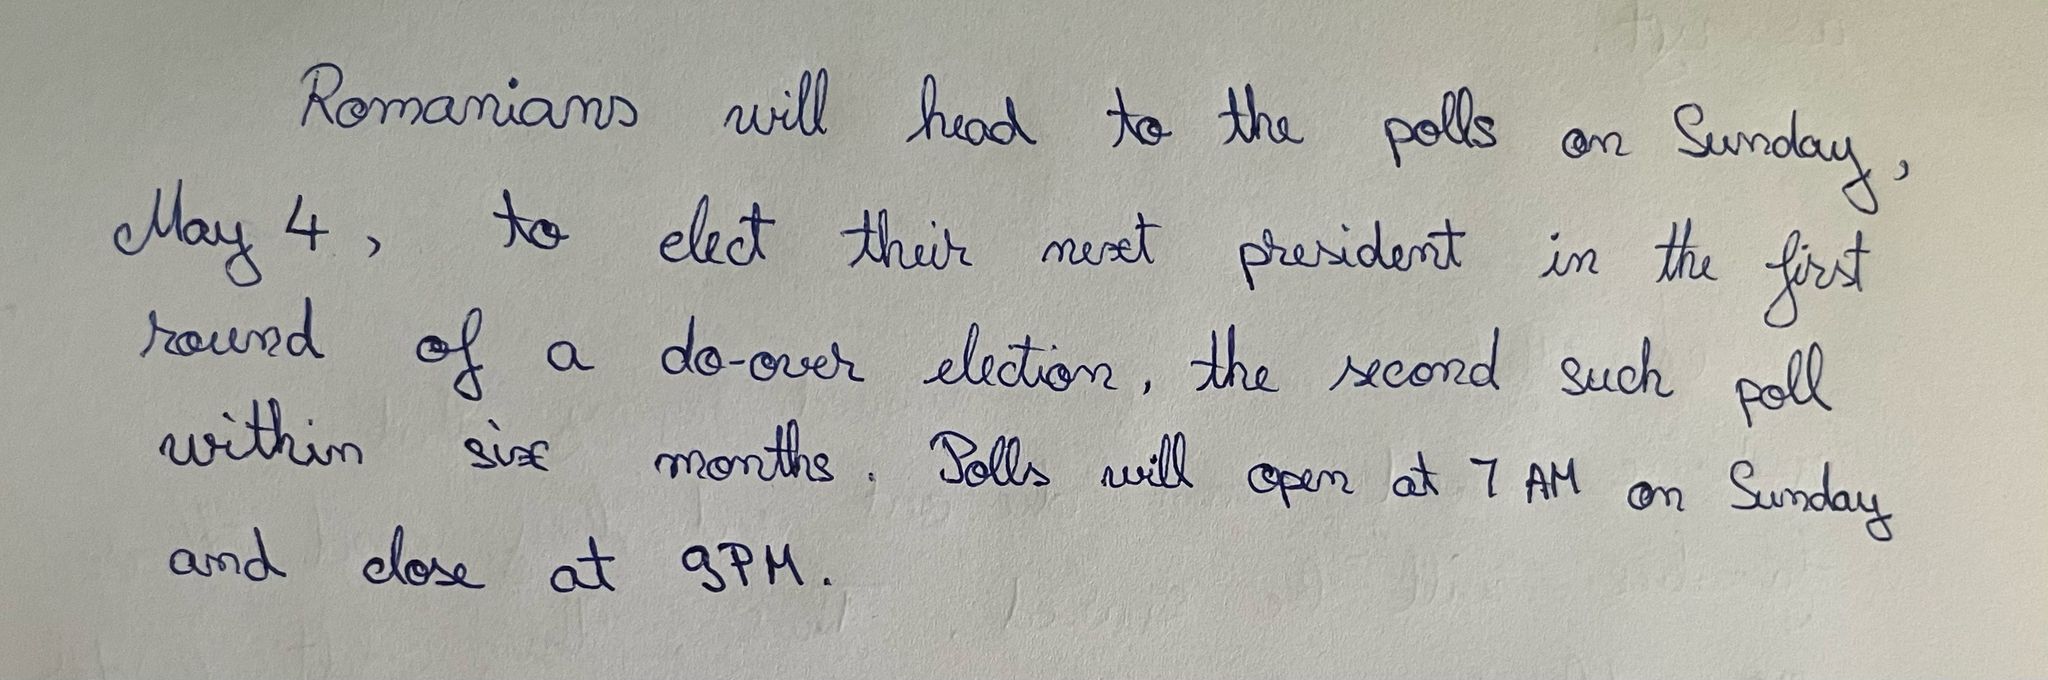 Romanians will head to the polls on Sunday,
May 4, to elect their next president in the first
round of a do-over election, the second such poll
within six months. Polls will open at 7 AM on Sunday
and close at 9PM.